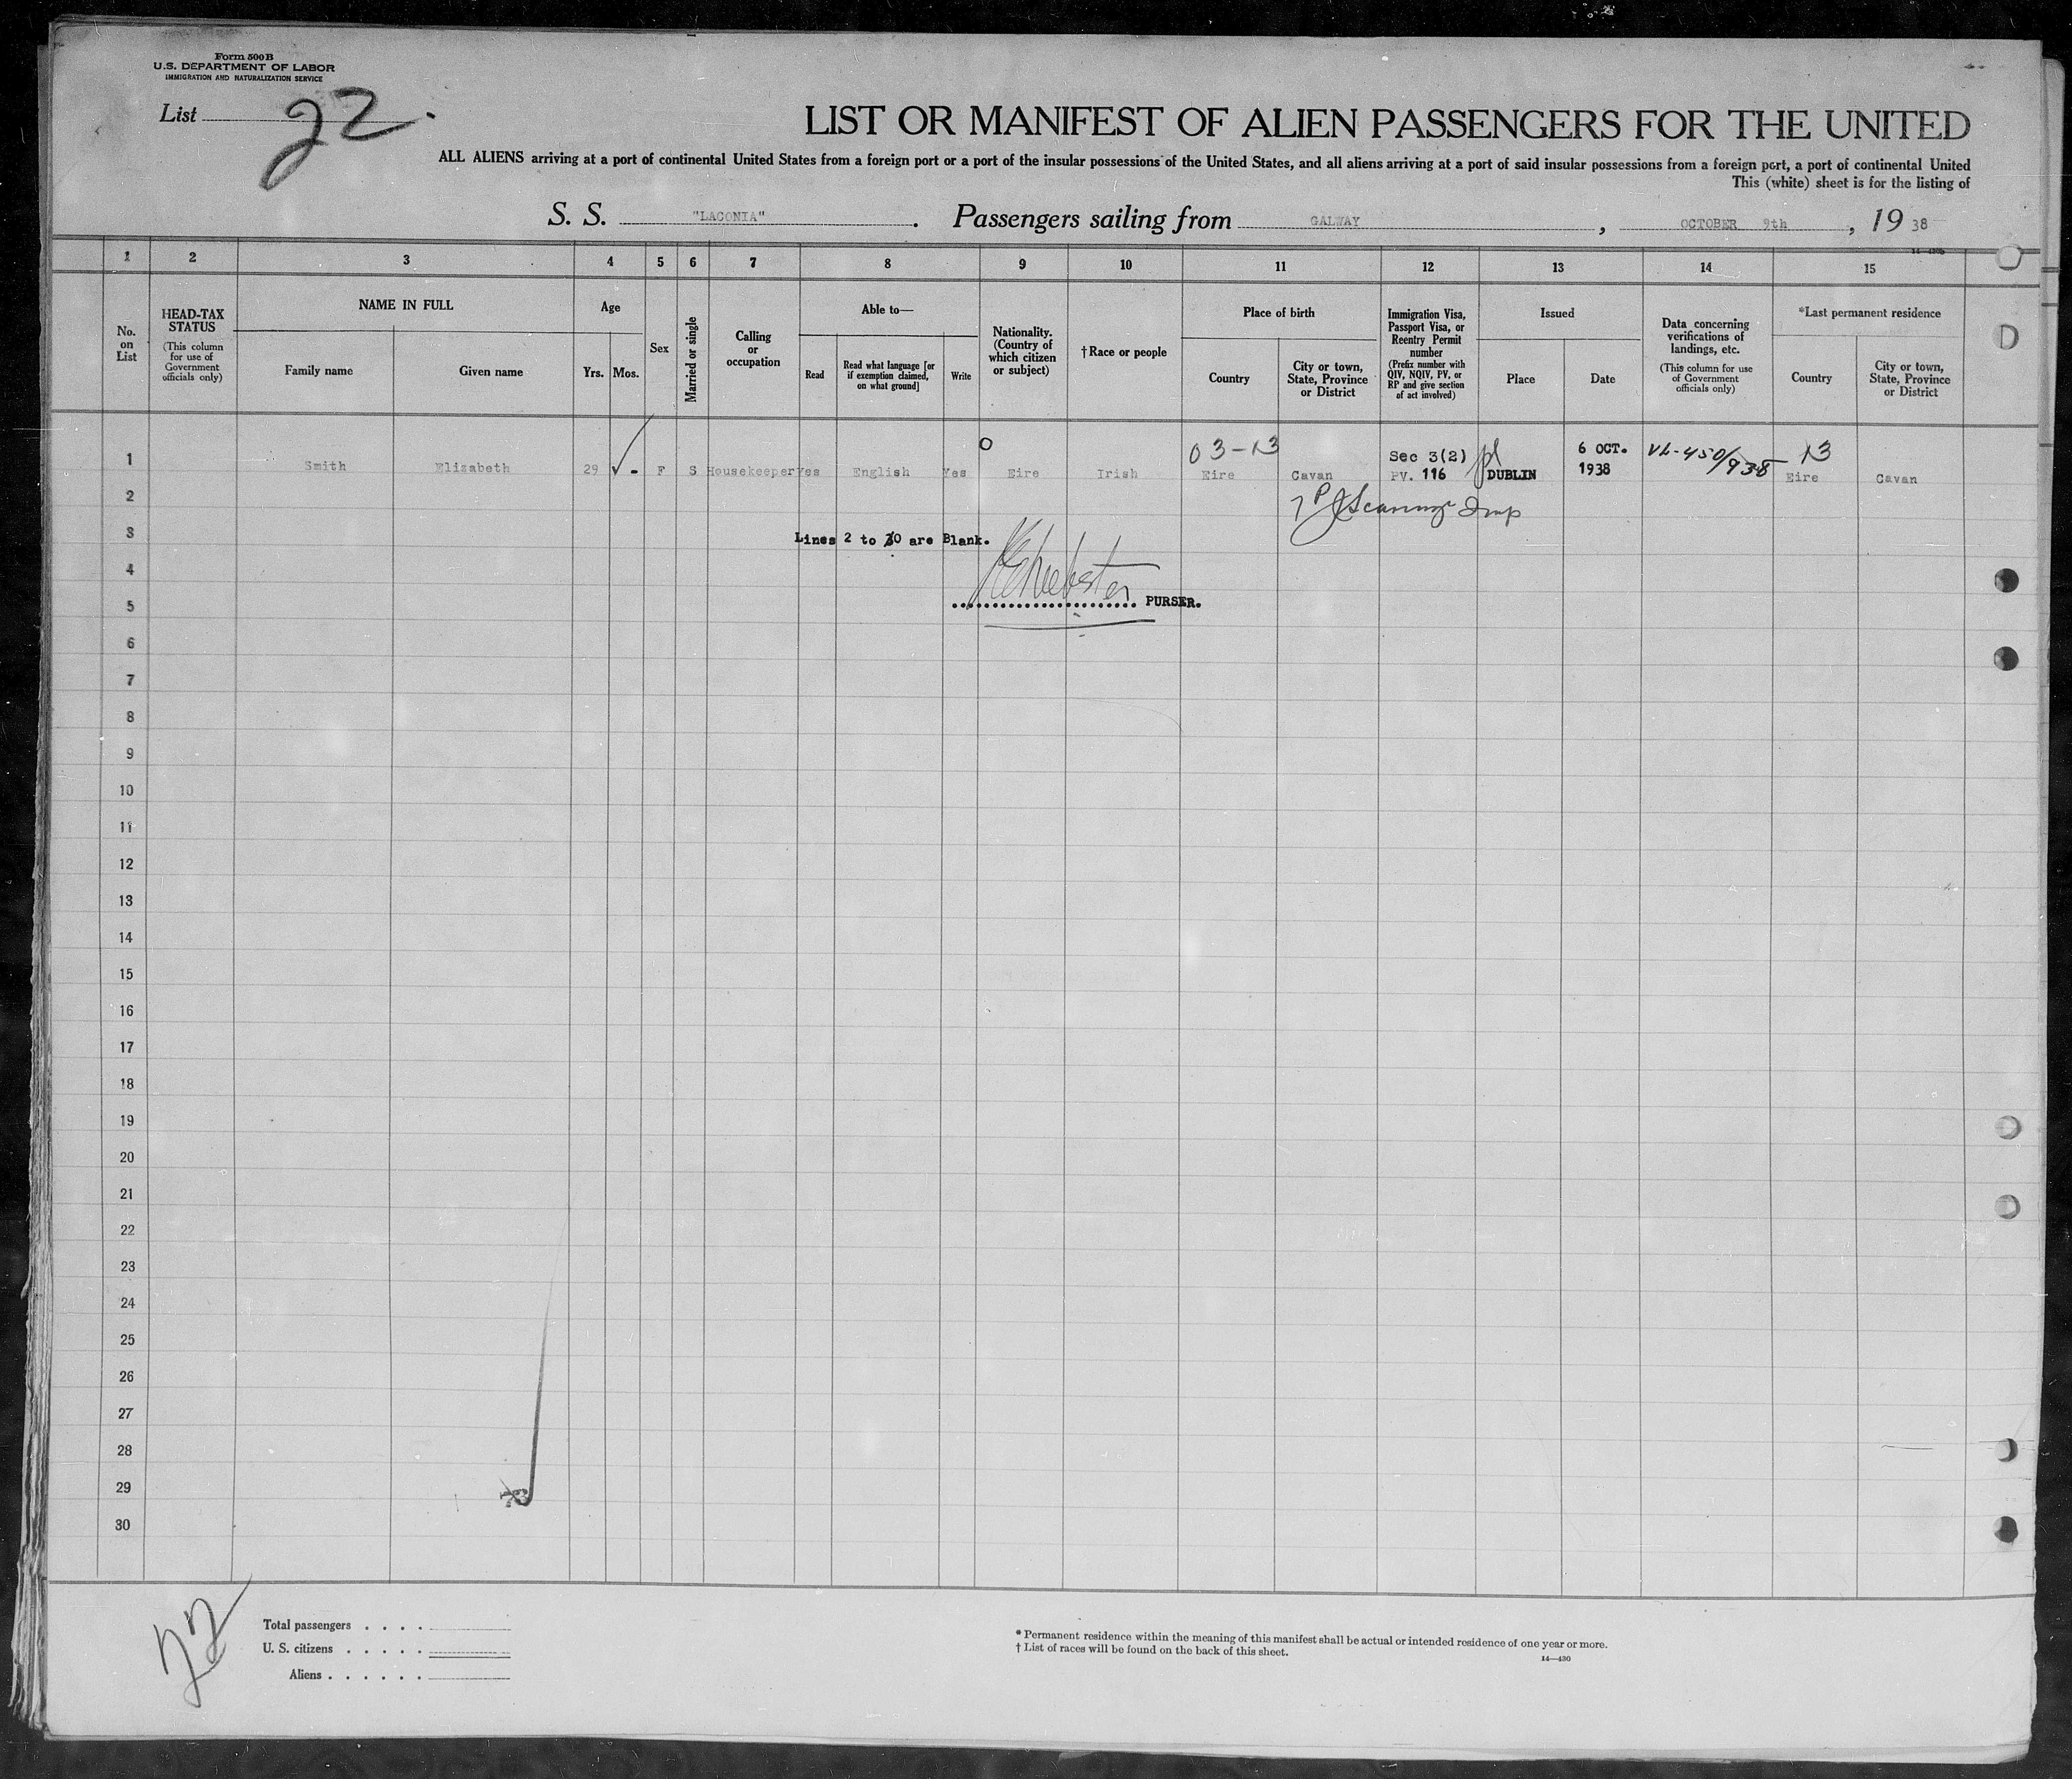 Form 500 B
U.S. DEPARTMENT OF LABOR
IMMIGRATION AND NATURALIZATION SERVICE
List 22.
LIST OR MANIFEST OF ALIEN PASSENGERS FOR THE UNITED
ALL ALIENS arriving at a port of continental United States from a foreign port or a port of the insular possessions of the United States, and all aliens arriving at a port of said insular possessions from a foreign port, a port of continental United
This (white) sheet is for the listing of
S. S. "LACONIA". Passengers sailing from GALWAY, OCTOBER 9th, 19 38
1 2 3 4 5 6 7 8 9 10 11 12 13 14 15
No. on List
HEAD-TAX STATUS (This column for use of Government officials only)
NAME IN FULL
Family name
Given name
Age
Yrs. Mos.
Sex
Married or single
Calling or occupation
Able to—
Read
Read what language [or if exemption claimed, on what ground]
Write
Nationality. (Country of which citizen or subject)
†Race or people
Place of birth
Country
City or town, State, Province or District
Immigration Visa, Passport Visa, or Reentry Permit number (Prefix number with QIV, NQIV, PV, or RP and give section of act involved)
Issued
Place
Date
Data concerning verifications of landings, etc. (This column for use of Government officials only)
*Last permanent residence
Country
City or town, State, Province or District
03-13
Sec 3(2)
6 OCT.
VL-450/938
13
1 Smith Elizabeth 29 - F S Housekeeper Yes English Yes Eire Irish Eire Cavan PV. 116 DUBLIN 1938 Eire Cavan
2
3 Lines 2 to 30 are Blank.
4
Webster
5 PURSER.
6
7
8
9
10
11
12
13
14
15
16
17
18
19
20
21
22
23
24
25
26
27
28
29
30
22
Total passengers . . . .
U. S. citizens . . . . .
Aliens . . . . . .
* Permanent residence within the meaning of this manifest shall be actual or intended residence of one year or more.
† List of races will be found on the back of this sheet.
14—430